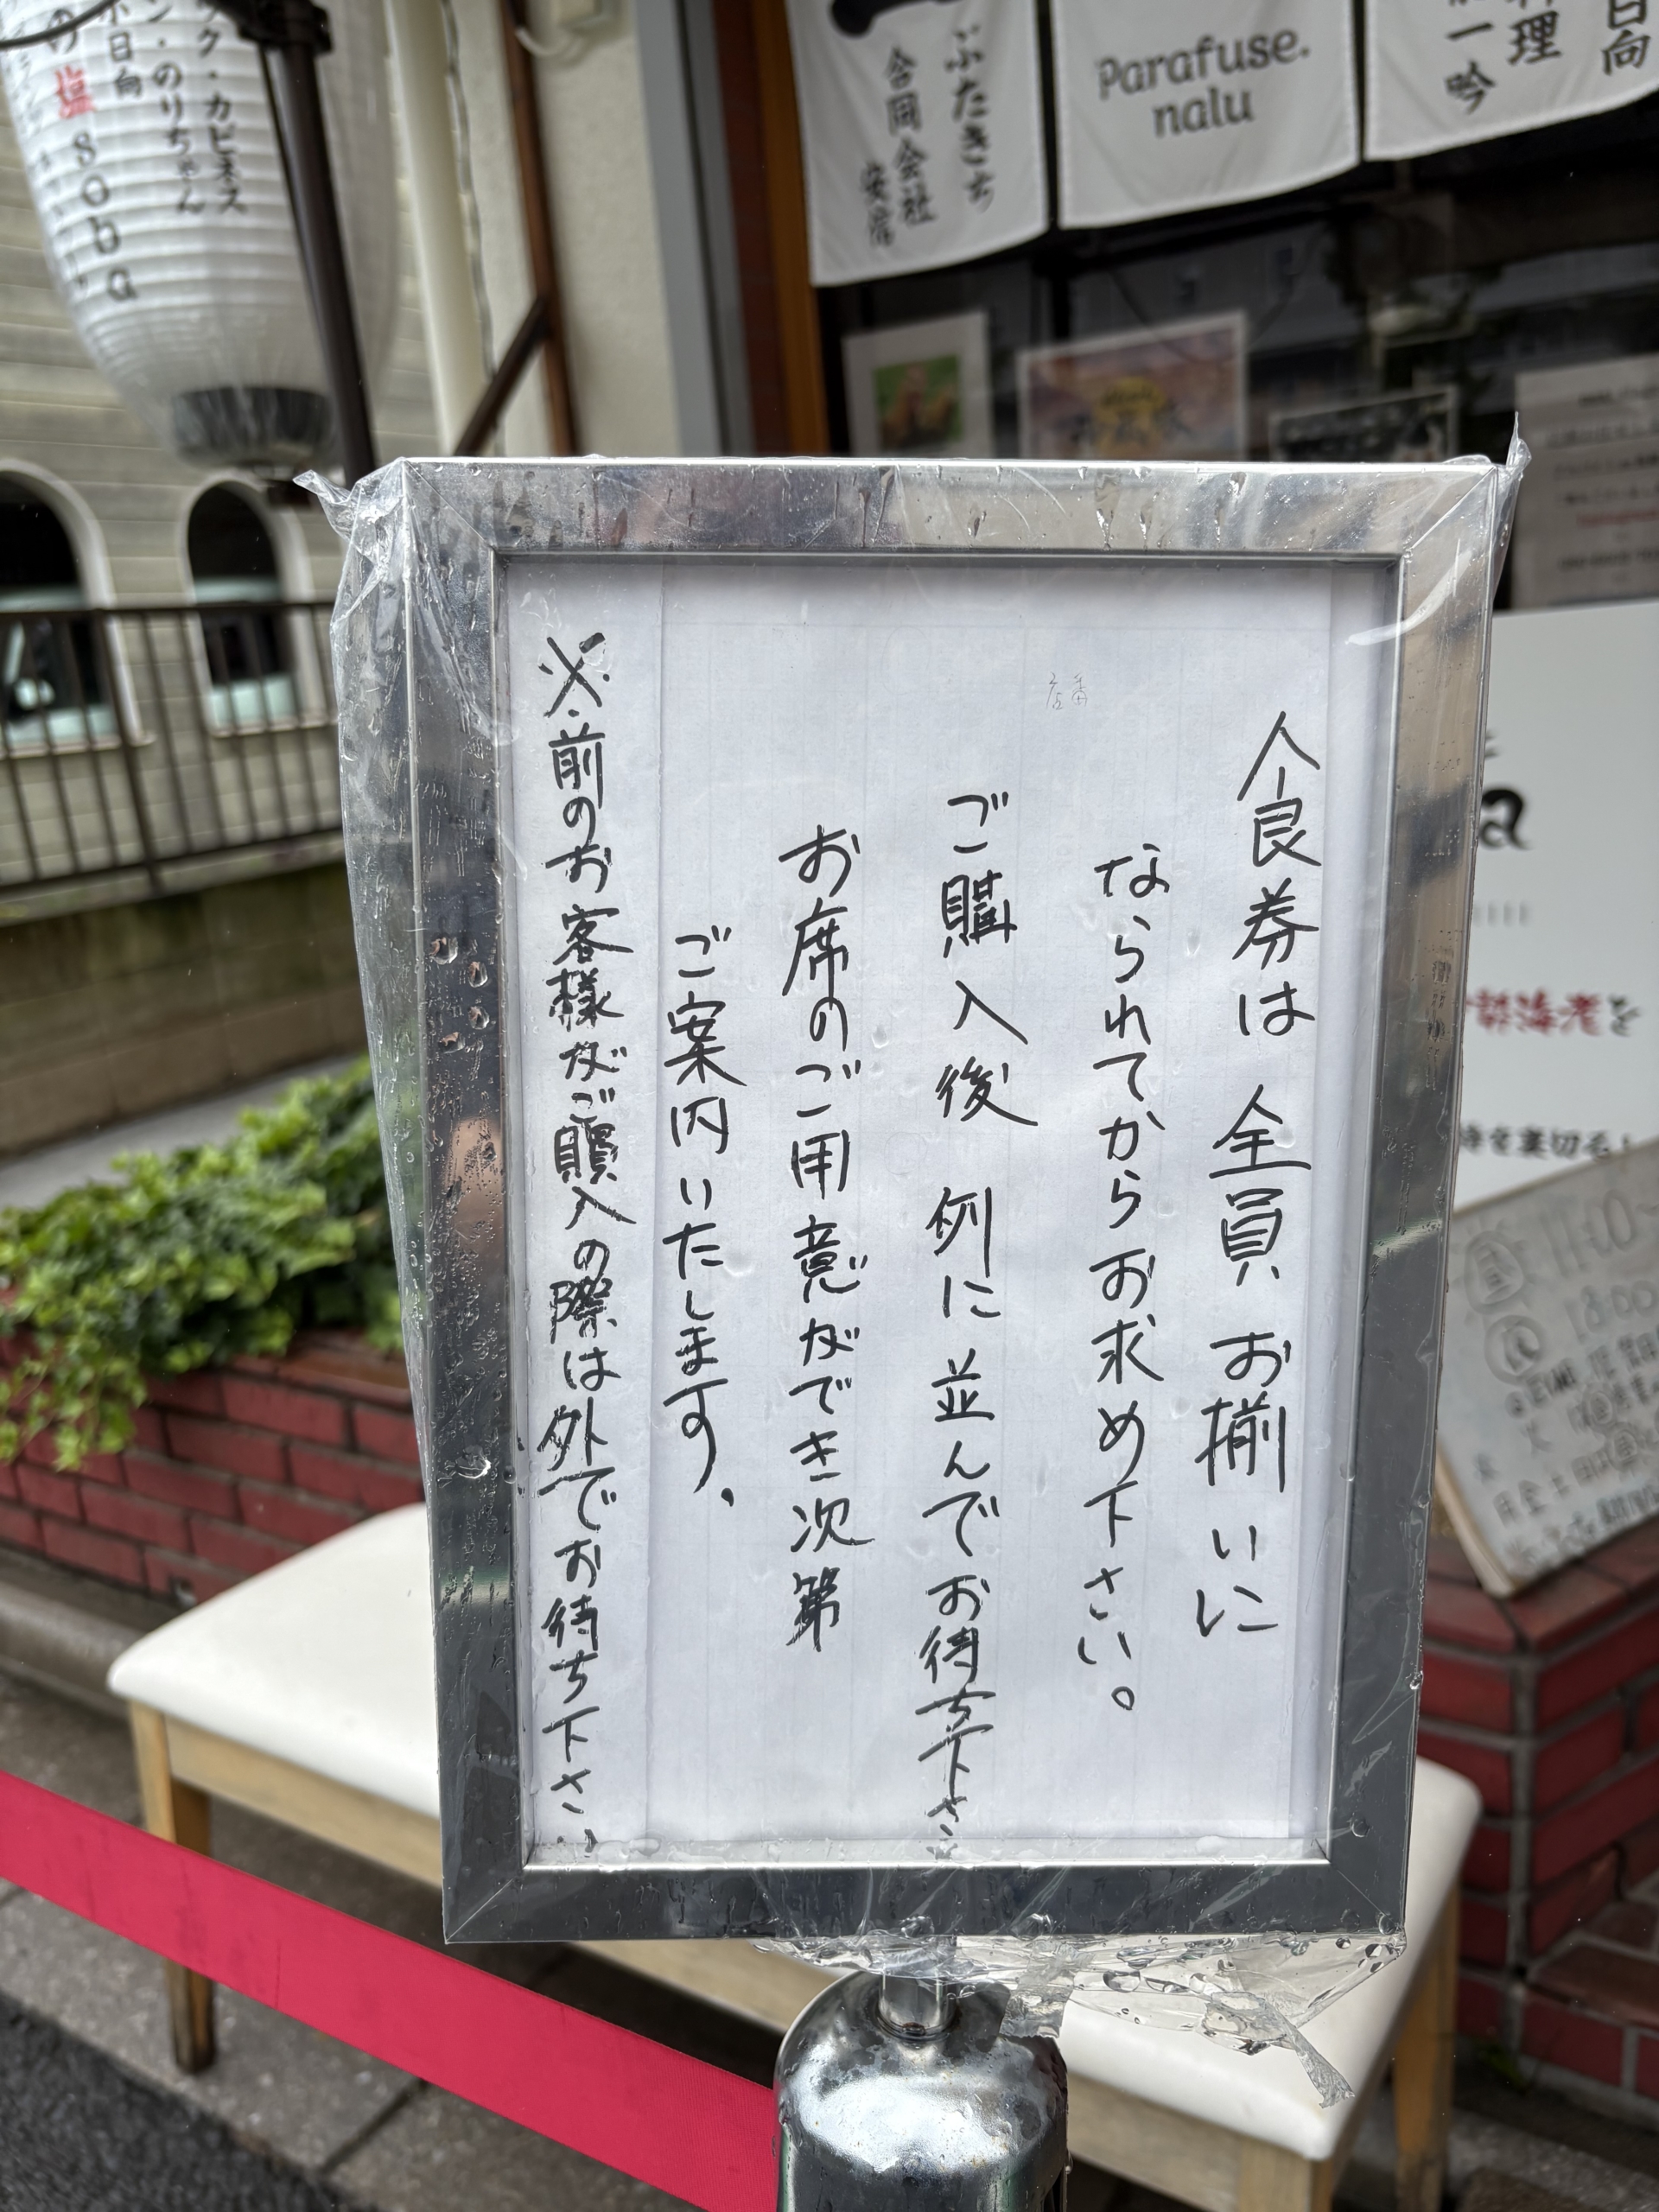 食券は 全員 お揃いに
なられてからお求め下さい。
ご購入後 例に並んでお待ち下さい
お席のご用意ができ次第
ご案内いたします。
※前のお客様がご購入の際は外でお待ち下さい
ぶたきち
合同会社
Parafuse.
nalu
一吟
料理
日向
カビネス
のりちゃん
日向
の塩soba
海老を
を裏切る